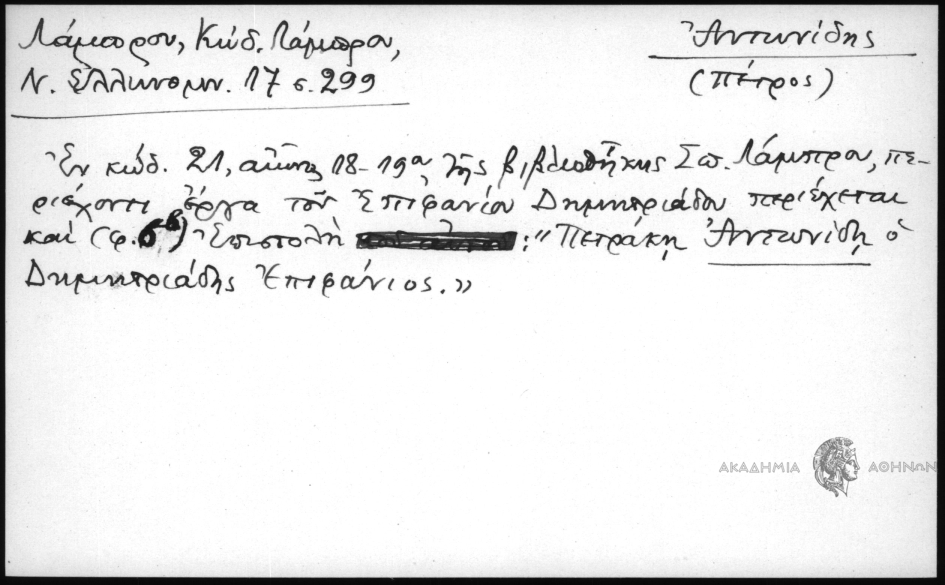 Λάμπρου, Κώδ. Λάμπρου,
Ν. Ἑλληνομν. 17 σ. 299
Ἀντωνίδης
(Πέτρος)
Ἐν κώδ. 21, αἰῶνος 18-19ου τῆς βιβλιοθήκης Σπ. Λάμπρου, πε-
ριέχοντι ἔργα τοῦ Ἐπιφανίου Δημητριάδου περιέχεται
καί (φ. 6β) Ἐπιστολή : "Πετράκῃ Ἀντωνίδῃ ὁ
Δημητριάδης Ἐπιφάνιος."
ΑΚΑΔΗΜΙΑ ΑΘΗΝΩΝ